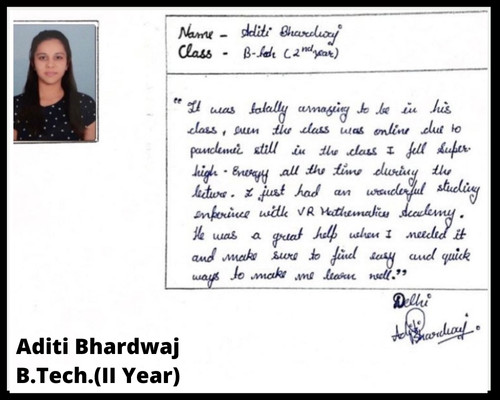 Name - Aditi Bhardwaj
Class - B.Tech (2nd year)
"It was totally amazing to be in his
class, even the class was online due to
pandemic still in the class I fell super
high-Energy all the time during the
lecture. I just had an wonderful studing
experince with VR Mathematics Academy.
He was a great help when I needed it
and make sure to find easy and quick
ways to make me learn well."
Delhi
Aditi Bhardwaj
Aditi Bhardwaj
B.Tech.(II Year)